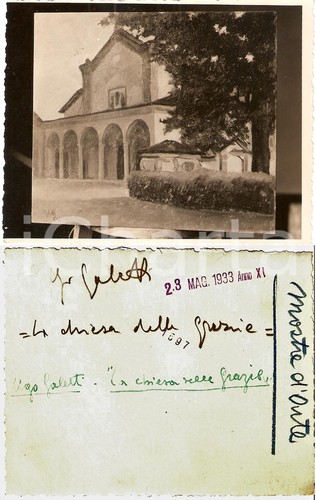 iCharta
Galetti
23 MAG. 1933 Anno XI
= La chiesa delle Grazie =
687
Ugo Galetti - "La chiesa delle Grazie"
mostre d'arte